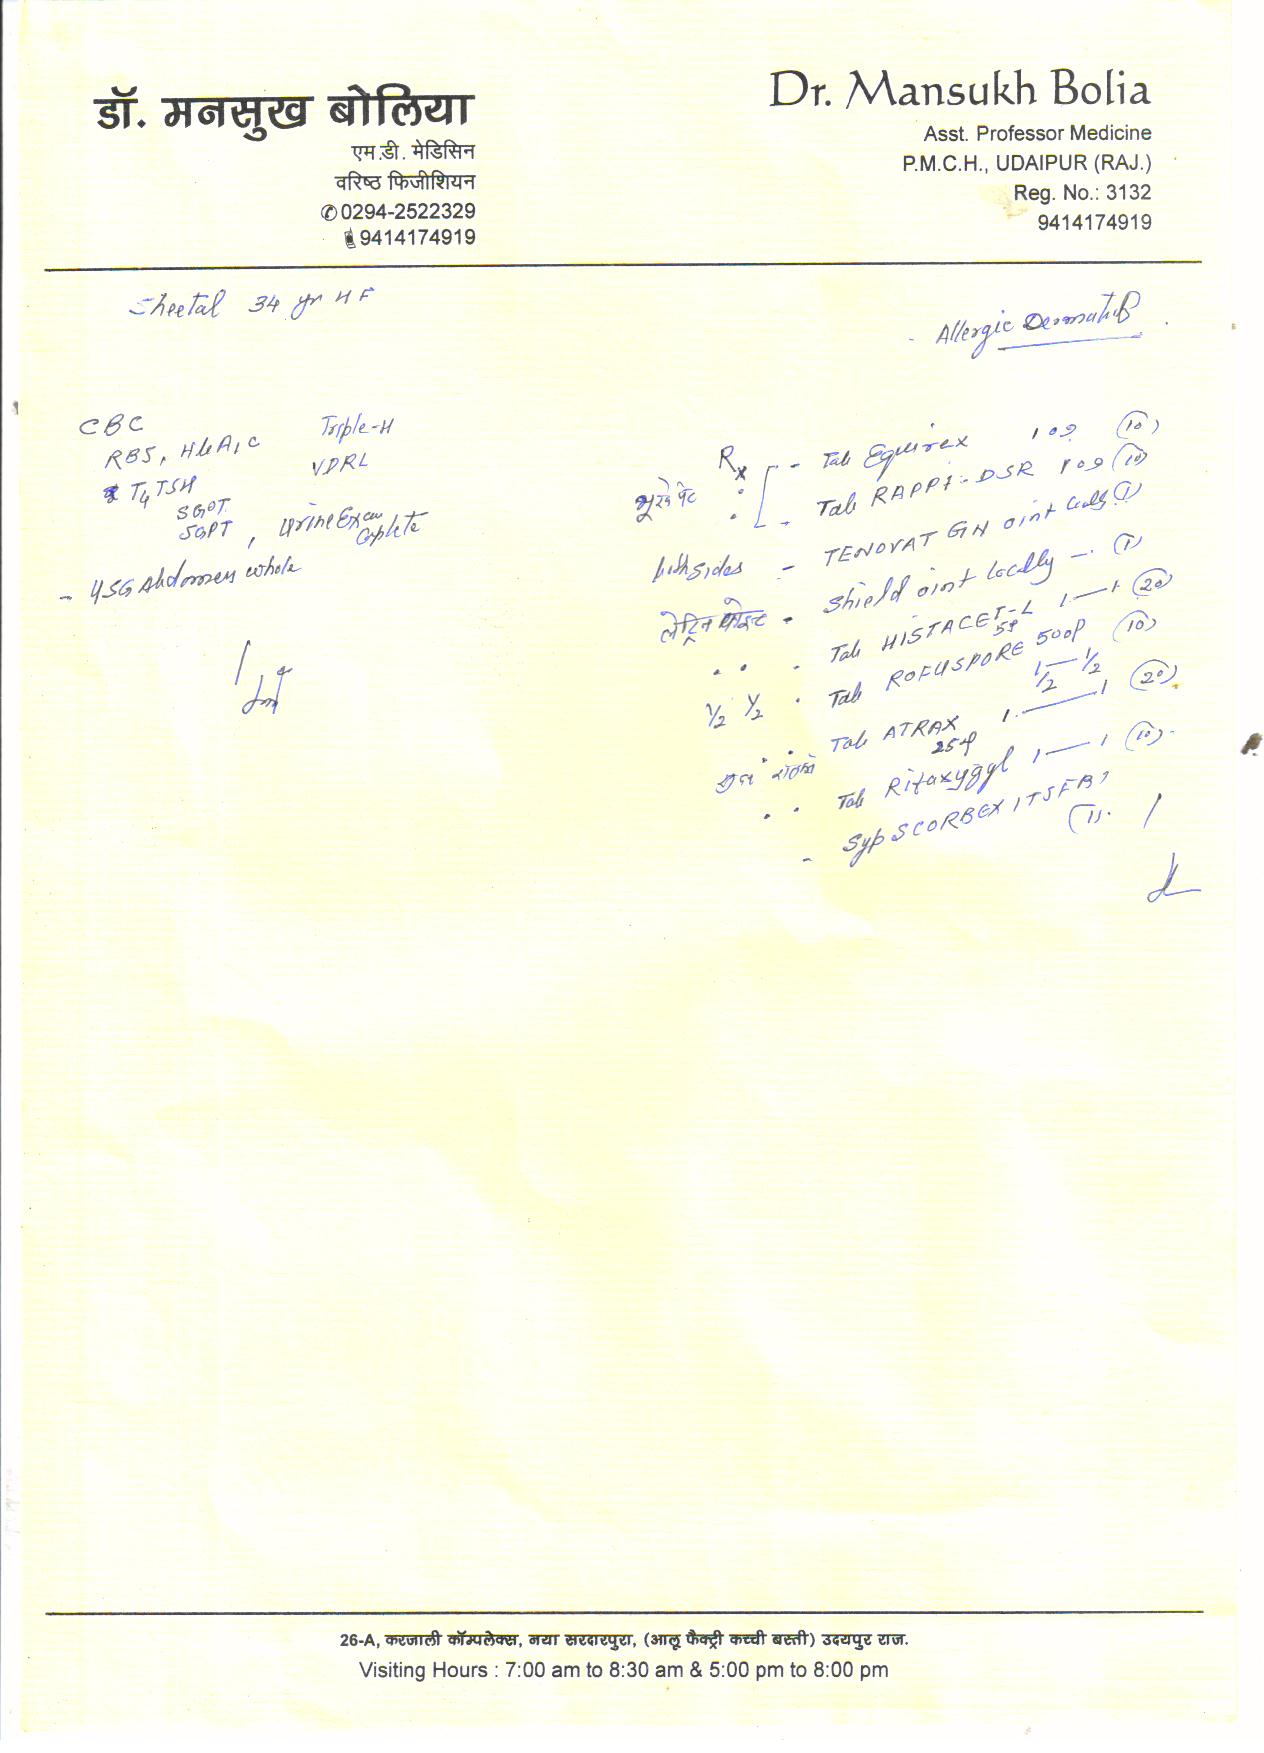 डॉ. मनसुख बोलिया
एम.डी. मेडिसिन
वरिष्ठ फिजीशियन
0294-2522329
9414174919
Dr. Mansukh Bolia
Asst. Professor Medicine
P.M.C.H., UDAIPUR (RAJ.)
Reg. No.: 3132
9414174919
Sheetal 34 yr H F
- Allergic Dermatitis
CBC Triple-H
RBS, HbA1C VDRL
T4 TSH
SGOT
SGPT, Urine Exam
Complete
- USG Abdomen whole
Rx
भूखे पेट - Tab Equirex (10)
- Tab RAPPI-DSR (10)
both sides - TENOVAT GN oint locally (1)
लेट्रिन पोइन्ट - Shield oint locally — (1)
- Tab HISTACET-L 1—1 (20)
½ ½ - Tab ROFUSPORE 500 (10)
½ — ½
Tab ATRAX 1 — 1 (20)
25
Tab Rifaxygyl 1 — 1 (10)
- Syp SCORBEX 1TSF
(1)
26-A, करजाली कॉम्पलेक्स, नया सरदारपुरा, (आलू फैक्ट्री कच्ची बस्ती) उदयपुर राज.
Visiting Hours : 7:00 am to 8:30 am & 5:00 pm to 8:00 pm